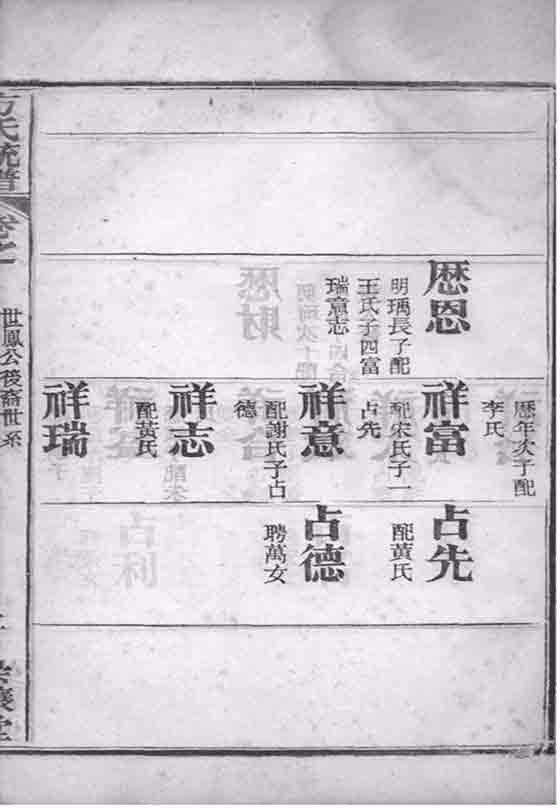 歷恩
明瑀長子配
王氏子四富
瑞意志
歷年次子配
李氏
祥富
配宋氏子一
占先
祥意
配謝氏子占
德
祥志
配萬氏
祥瑞
占先
配黃氏
占德
聘萬女
方氏統譜
卷之
世鳳公後裔世系